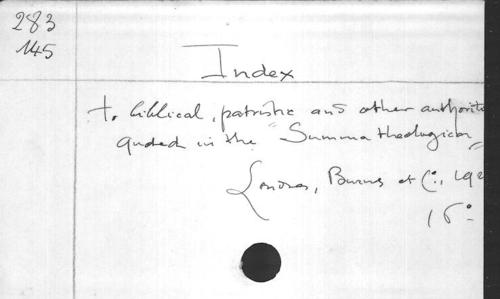 283
145
Index
to biblical, patristic and other authorite
quoted in the "Summa theologica"
Londres, Burns et C°., 192
16°